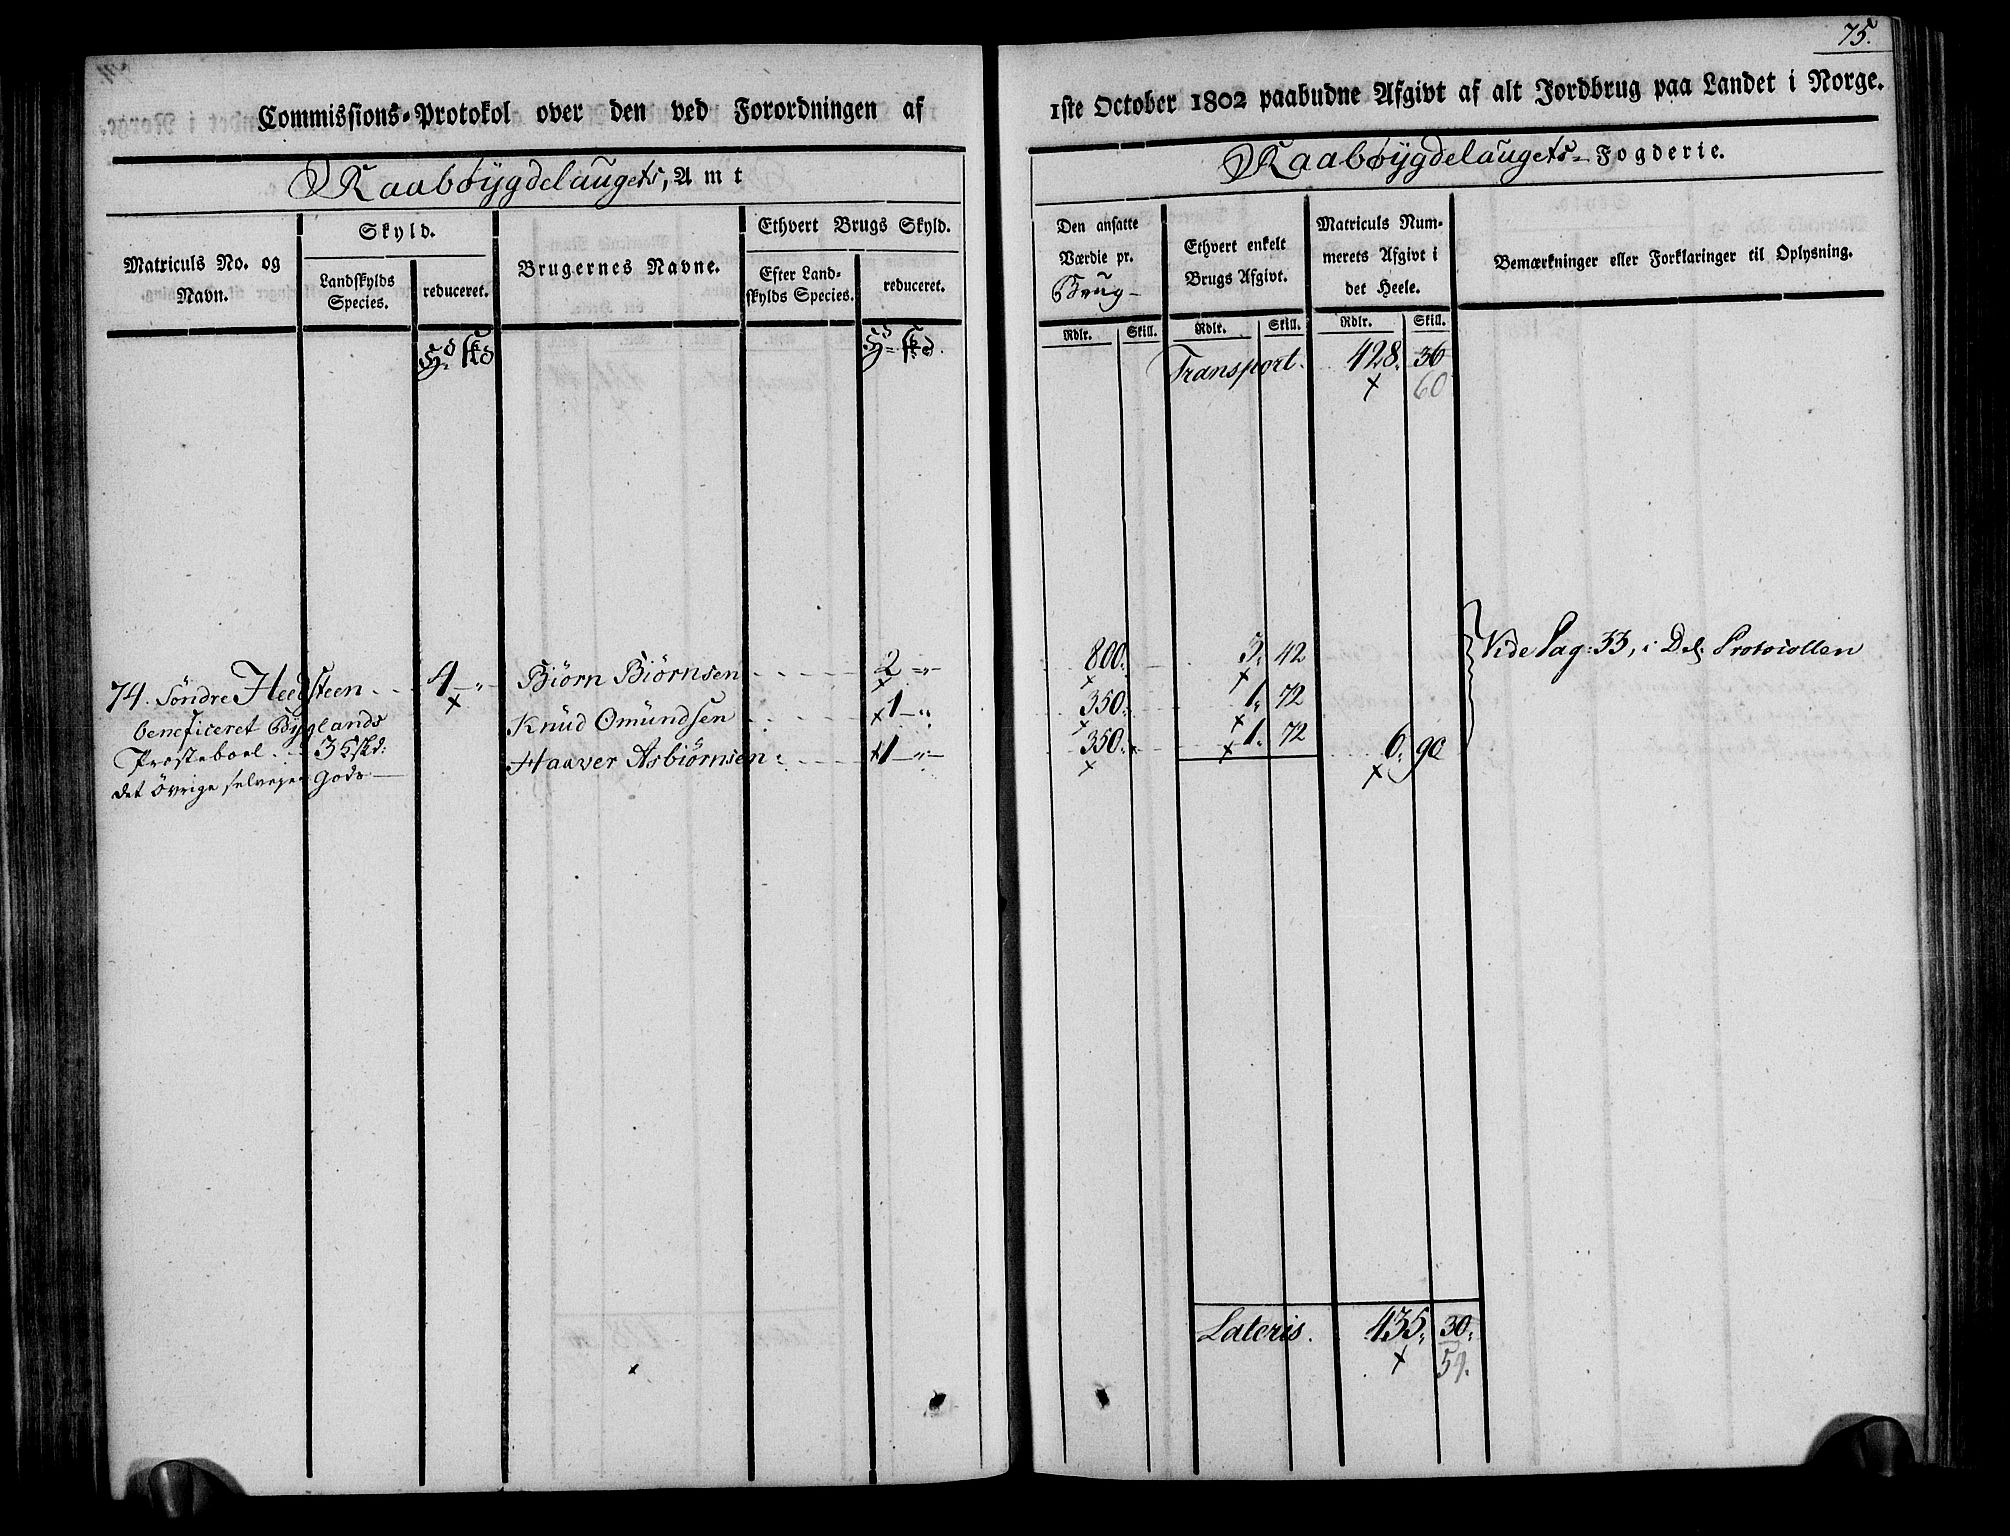 75.
Commissions-Protokol over den ved Forordningen af 1ste October 1802 paabudne Afgivt af alt Jordbrug paa Landet i Norge.
Raabøygdelaugets, Amt
Raabøygdelaugets- Fogderie.
Matriculs No. og Navn.
Skyld.
Landskylds Species.
reduceret.
Brugernes Navne.
Ethvert Brugs Skyld.
Efter Landskylds Species.
reduceret.
Den ansatte Værdie pr. Brug-
Ethvert enkelt Brugs Afgivt.
Matriculs Nummerets Afgivt i det Heele.
Bemærkninger eller Forklaringer til Oplysning.
Rdlr. Skill. Rdlr. Skill. Rdlr. Skill.
Transport. 428. 36
60
74. Søndre Heegsteen 4 Biørn Biørnsen 2 800. 3. 42 Vide Pag: 33, i Del. Protocollen
beneficeret Byglands Knud Omundsen 1 350. 1. 72
Præsteboel 3 Skd: Haaver Asbiørnsen 1 350. 1. 72 6. 90
det øvrige selveger Gods
Lateris. 435. 30.